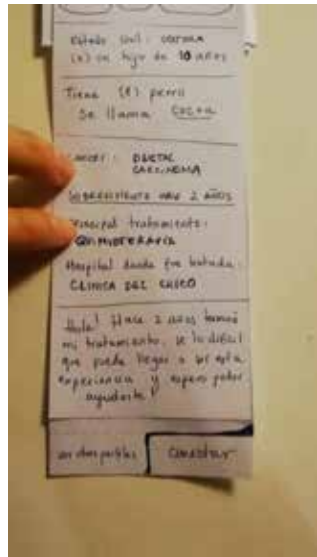 Estado civil: soltera
(1) un hijo de 10 años
Tiene (1) perro
Se llama
CANCER: DUCTAL
CARCINOMA
SOBREVIVIENTE HACE 2 AÑOS
Principal tratamiento:
QUIMIOTERAPIA
Hospital donde fue tratada:
CLINICA DEL CHICO
Hola! Hace 2 años terminé
mi tratamiento, se lo dificil
que puede llegar a ser esta
experiencia y espero poder
ayudarte!
ver otros perfiles
Conectar